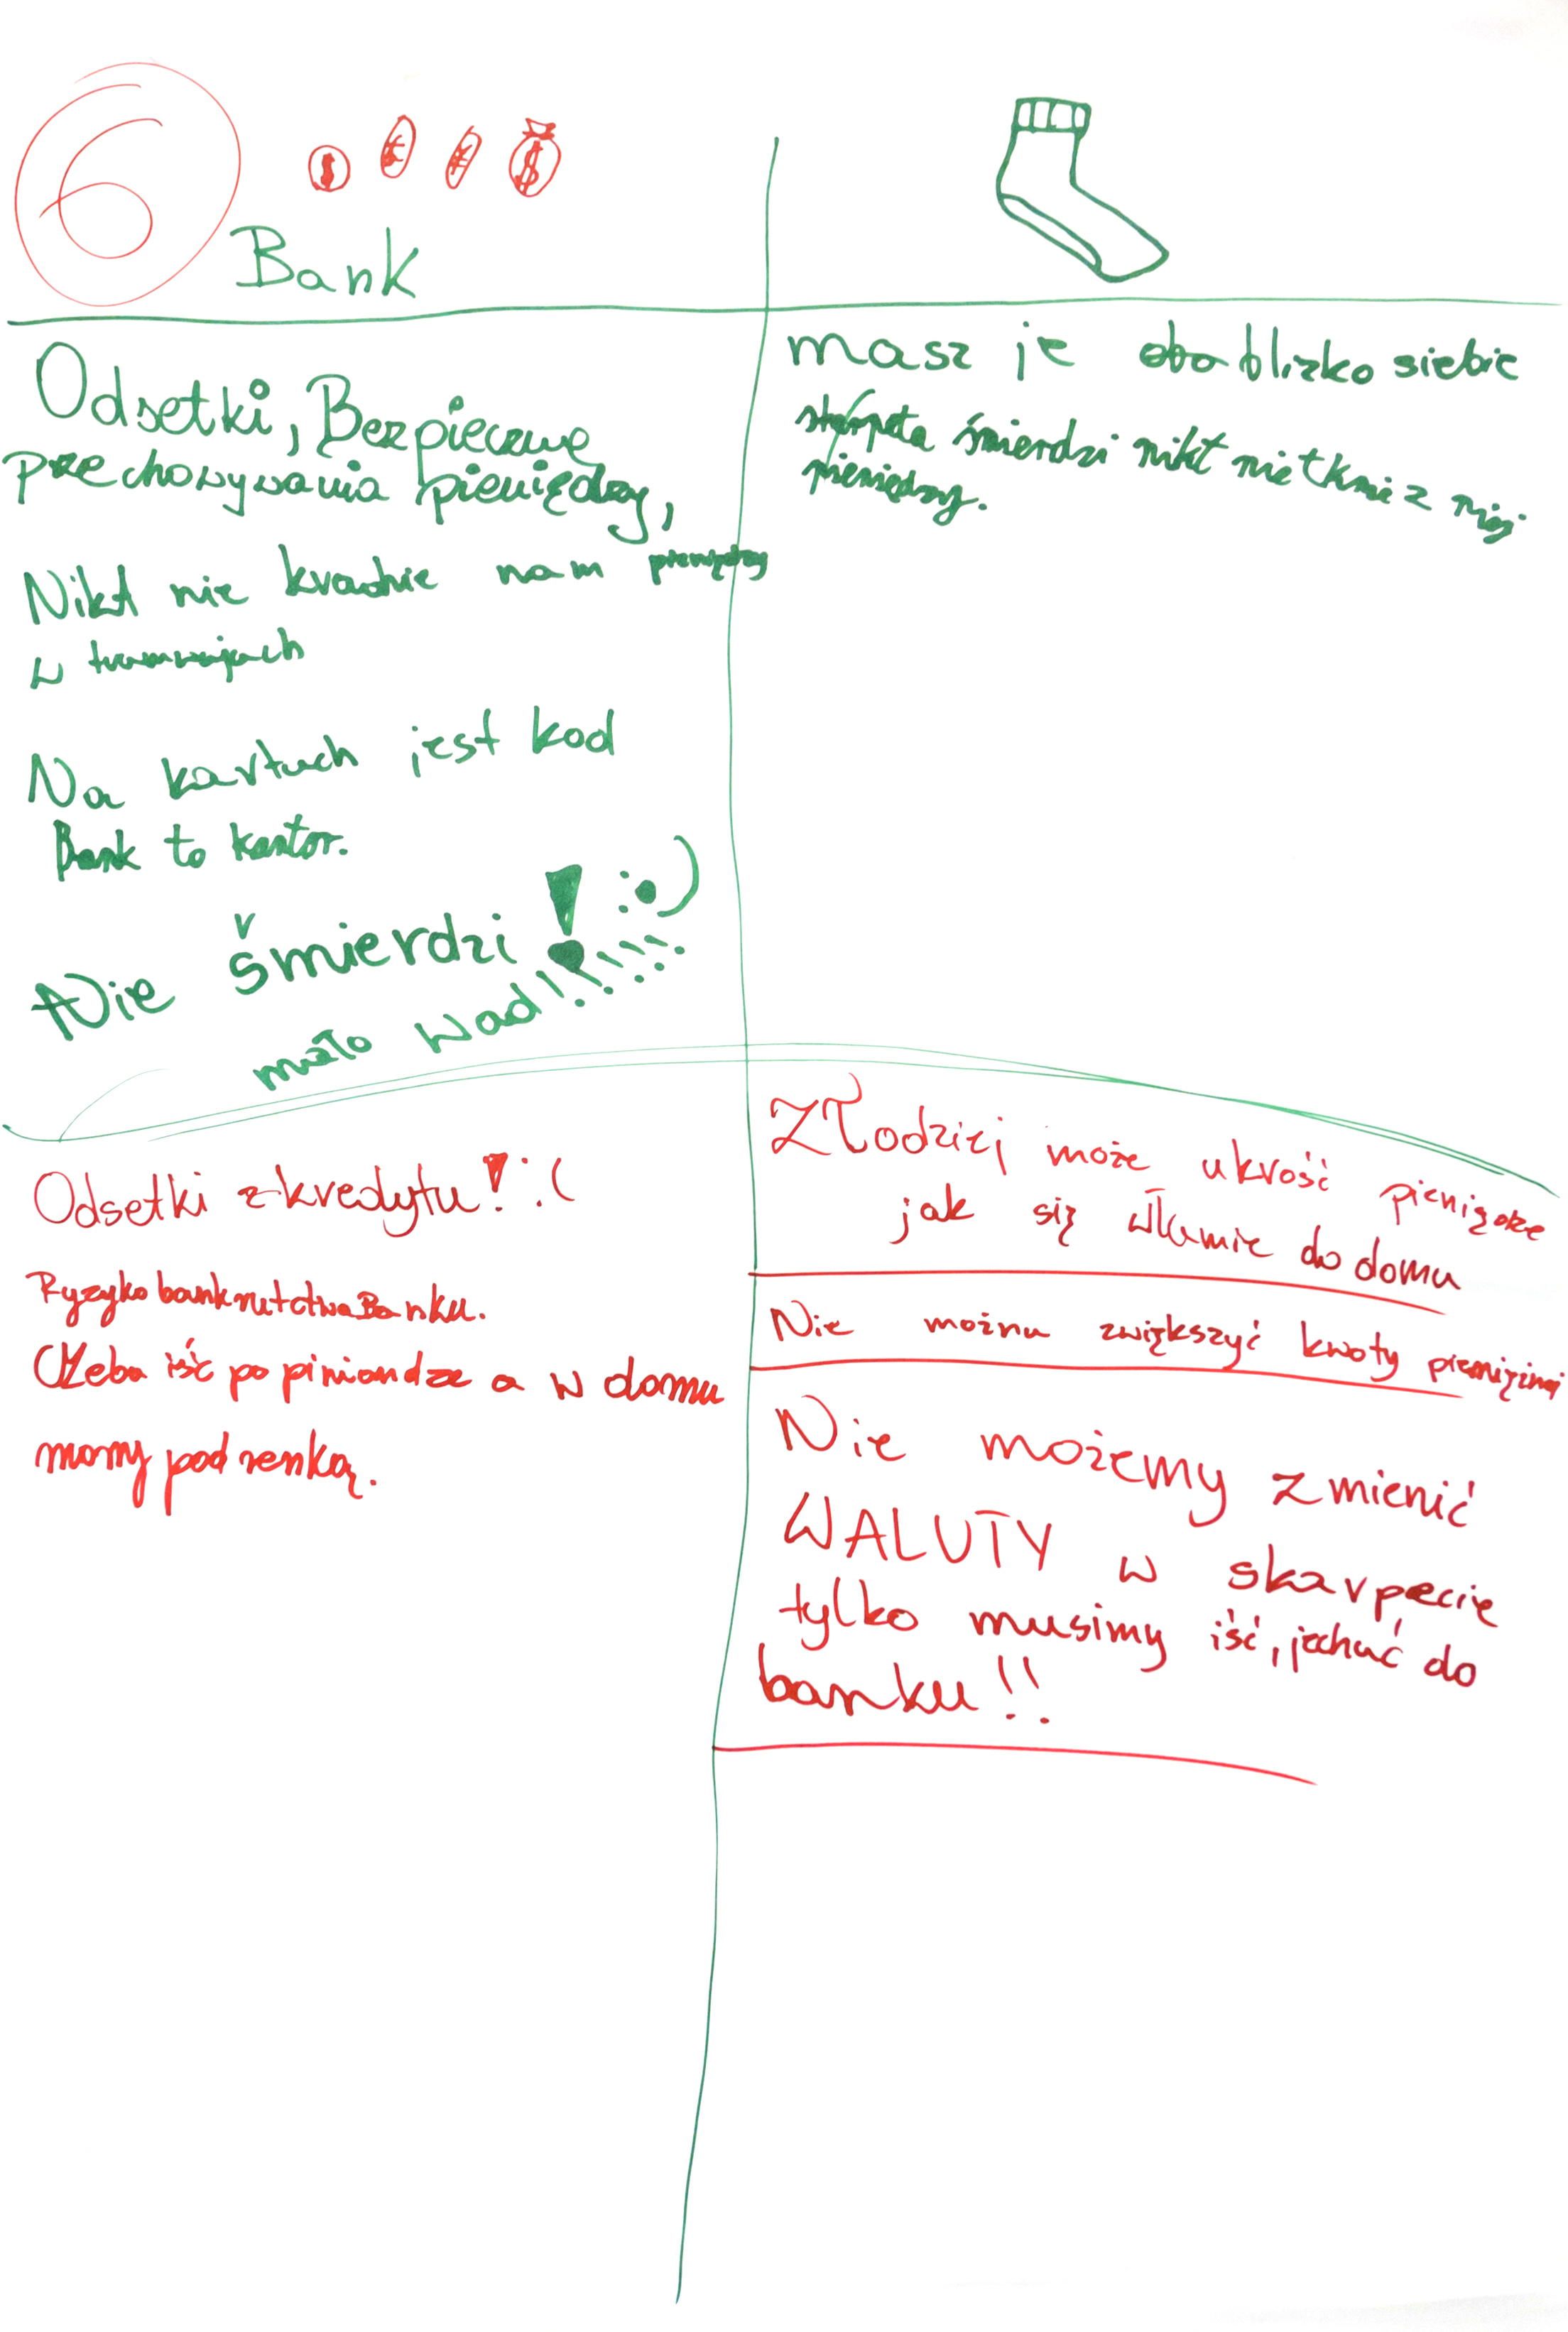 6
Bank
Odsetki, Bezpieczne
przechowywania pieniędzy,
Nikt nie kradnie nam pieniędzy
w
Na kartach jest kod
Bank to kantor.
Nie śmierdzi! :•)
mało wad!!!!!!
masz je blizko siebie
skarpeta śmierdzi nikt nie tknie z niej
pieniędzy.
Odsetki z kredytu! :(
Ryzyko bankrutctwa Banku.
tżeba iść po piniondze a w domu
mamy pod renką.
Złodziej może ukrość pieniądze
jak się włamie do domu
Nie można zwiększyć kwoty pieniężnej
Nie możemy zmienić
WALUTY w skarpecie
tylko musimy iść, jechać do
banku!!